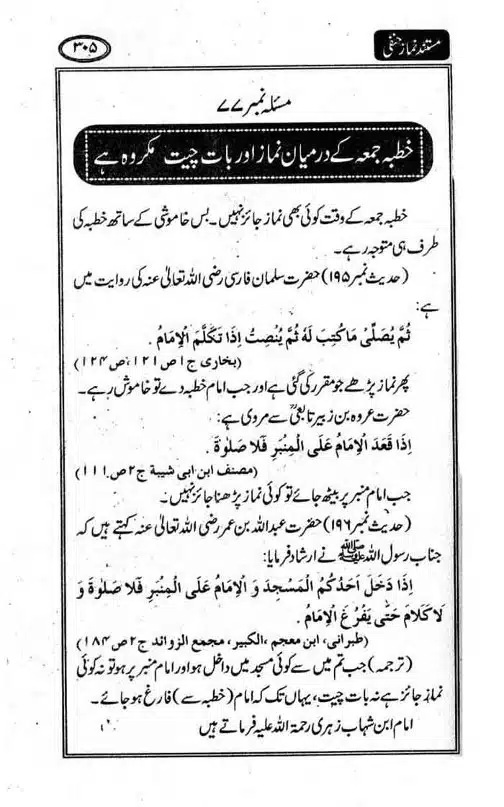 مستند نماز حنفی
۳۰۵
مسئلہ نمبر ۷۷
خطبہ جمعہ کے درمیان نماز اور بات چیت مکروہ ہے
خطبہ جمعہ کے وقت کوئی بھی نماز جائز نہیں۔ بس خاموشی کے ساتھ خطبہ کی
طرف ہی متوجہ رہے۔
(حدیث نمبر ۱۹۵) حضرت سلمان فارسی رضی اللہ تعالیٰ عنہ کی روایت میں
ہے:
ثُمَّ يُصَلِّيْ مَا كُتِبَ لَهُ ثُمَّ يُنْصِتُ اِذَا تَكَلَّمَ الْاِمَامُ.
(بخاری ج۱ ص۱۲۱، ص۱۲۴)
پھر نماز پڑھے جو مقرر کی گئی ہے اور جب امام خطبہ دے تو خاموش رہے۔
حضرت عروہ بن زبیر تابعیؒ سے مروی ہے:
اِذَا قَعَدَ الْاِمَامُ عَلَى الْمِنْبَرِ فَلَا صَلٰوةَ.
(مصنف ابن ابی شیبة ج۲ ص۱۱۱)
جب امام منبر پر بیٹھ جائے تو کوئی نماز پڑھنا جائز نہیں۔
(حدیث نمبر ۱۹۶) حضرت عبداللہ بن عمر رضی اللہ تعالیٰ عنہ کہتے ہیں کہ
جناب رسول اللہ ﷺ نے ارشاد فرمایا:
اِذَا دَخَلَ اَحَدُكُمُ الْمَسْجِدَ وَ الْاِمَامُ عَلَى الْمِنْبَرِ فَلَا صَلٰوةَ وَ
لَا كَلَامَ حَتّٰى يَفْرُغَ الْاِمَامُ.
(طبرانی، ابن معجم، الکبیر، مجمع الزوائد ج۲ ص۱۸۴)
(ترجمہ) جب تم میں سے کوئی مسجد میں داخل ہو اور امام منبر پر ہو تو نہ کوئی
نماز جائز ہے نہ بات چیت، یہاں تک کہ امام (خطبہ سے) فارغ ہو جائے۔
امام ابن شہاب زہری رحمۃ اللہ علیہ فرماتے ہیں